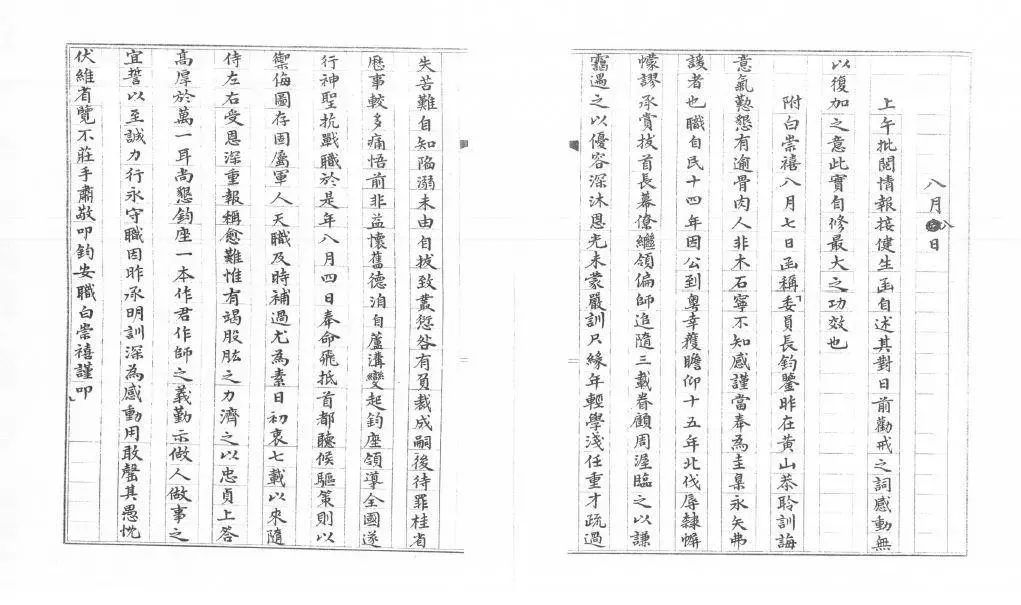 八月八日
上午批閱情報接健生函自述其對日前勸戒之詞感動無
以復加之意此實自修最大之功效也
附白崇禧八月七日函稱「委員長鈞鑒昨在黃山恭聆訓誨
意氣懃懇有逾骨肉人非木石寧不知感謹當奉為圭臬永矢弗
諼者也職自民十四年因公到粵幸獲瞻仰十五年北伐辱隸幈
幪謬承賞拔首長幕僚繼領偏師追隨三載眷顧周渥臨之以謙
靄遇之以優容深沐恩光未蒙嚴訓只緣年輕學淺任重才疏過
失苦難自知陷溺未由自拔致叢愆咎有負裁成嗣後待罪桂省
歷事較多痛悟前非益懷舊德洎自蘆溝變起鈞座領導全國遂
行神聖抗戰職於是年八月四日奉命飛抵首都聽候驅策則以
禦侮圖存固屬軍人天職及時補過尤為素日初衷七載以來隨
侍左右受恩深重報稱愈難惟有竭股肱之力濟之以忠貞上答
高厚於萬一耳尚懇鈞座一本作君作師之義勤示做人做事之
宜誓以至誠力行永守職因昨承明訓深為感動用敢罄其愚忱
伏維省覽不莊手肅敬叩鈞安職白崇禧謹叩」